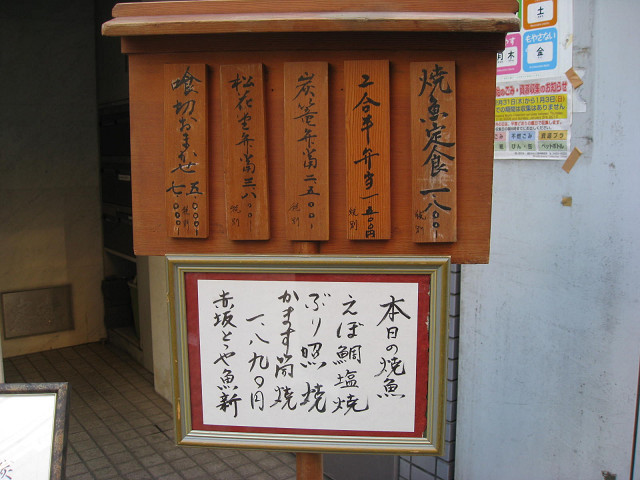 焼魚定食 一八〇〇 税別
二合半弁当 一五〇〇円 税別
炭篭弁當 二五〇〇 税別
松花堂弁當 三八〇〇 税別
喰切おまかせ 五〇〇〇 七〇〇〇 税別
本日の焼魚
えぼ鯛塩焼
ぶり照焼
かます筒焼
一、八九〇円
赤坂とゝや魚新
土
もやさない
月 木
金
31日(木)から1月3日(日)
の期間は収集はありません
不燃ごみ
資源プラ
びん・缶
ペットボトル